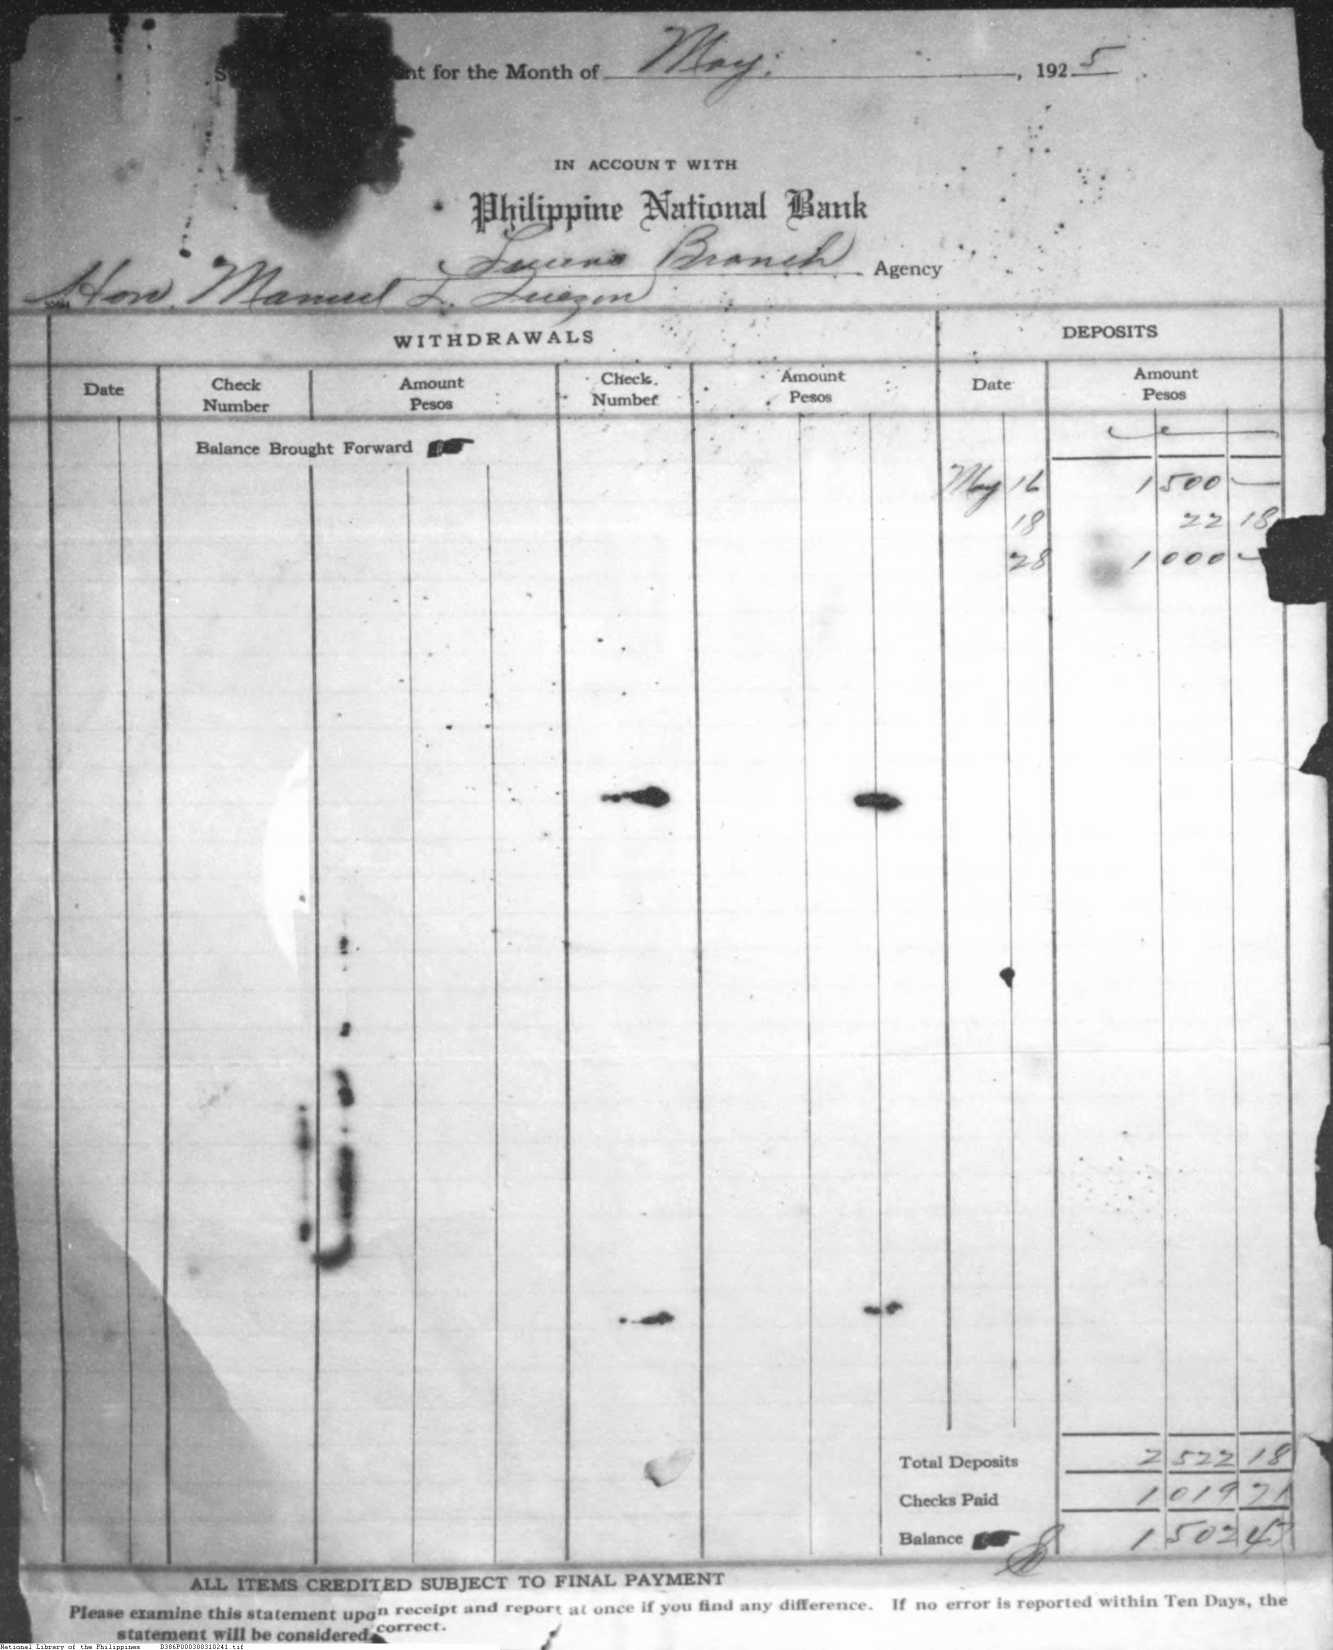 nt for the Month of May. , 1925
IN ACCOUNT WITH
Philippine National Bank
Lucena Branch Agency
Hon. Manuel L. Quezon
WITHDRAWALS DEPOSITS
Date Check Number Amount Pesos Check Number Amount Pesos Date Amount Pesos
Balance Brought Forward
May 16 1 500 —
18 22 18
28 1 000 —
Total Deposits 2 522 18
Checks Paid 1 019 71
Balance 1 502 47
ALL ITEMS CREDITED SUBJECT TO FINAL PAYMENT
Please examine this statement upon receipt and report at once if you find any difference. If no error is reported within Ten Days, the
statement will be considered correct.
National Library of the Philippines B386P000300310241.tif